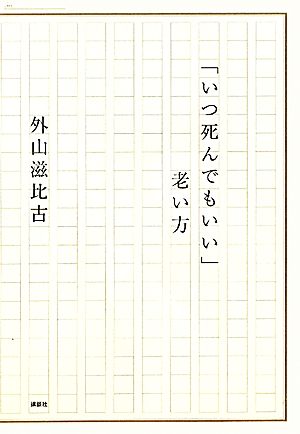 「いつ死んでもいい」
老い方
外山滋比古
講談社